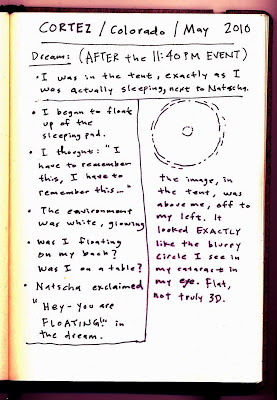 CORTEZ / Colorado / May 2010
Dream: (AFTER the 11:40 PM EVENT)
• I was in the tent, exactly as I
was actually sleeping, next to Natscha.
• I began to float
up of the
sleeping pad.
• I thought: "I
have to remember
this, I have to
remember this..."
• The environment
was white, glowing
• Was I floating
on my back?
Was I on a table?
• Natscha exclaimed
"Hey - you are
FLOATING!" in
the dream.
The image, in
the tent, was
above me, off to
my left. It
looked EXACTLY
like the blurry
circle I see in
my cataract in
my eye. Flat,
not truly 3D.